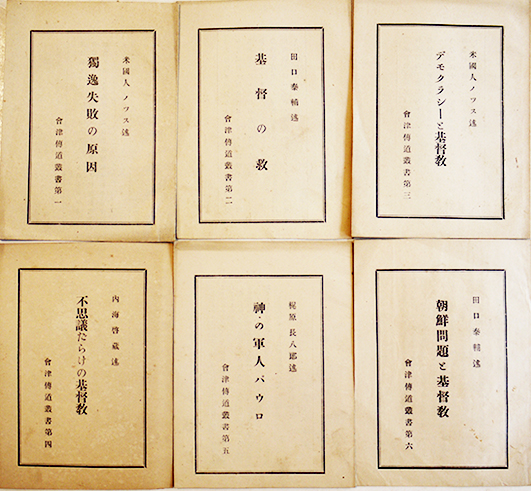 米國人ノツス述
獨逸失敗の原因
會津傳道叢書第一
田口泰輔述
基督の敎
會津傳道叢書第二
米國人ノツス述
デモクラシーと基督敎
會津傳道叢書第三
內海啓藏述
不思議だらけの基督敎
會津傳道叢書第四
梶原長八郞述
神の軍人パウロ
會津傳道叢書第五
田口泰輔述
朝鮮問題と基督敎
會津傳道叢書第六